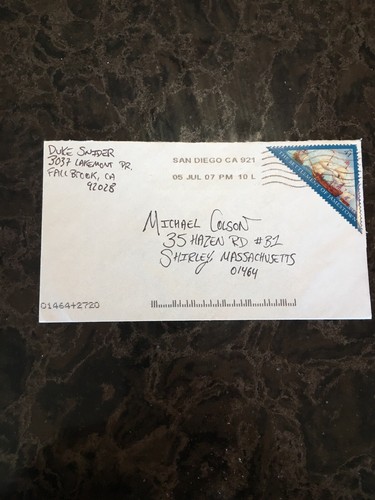 DUKE SNIDER
3037 LAKEMONT DR.
FALLBROOK, CA
92028
SAN DIEGO CA 921
05 JUL 07 PM 10 L
MICHAEL COLSON
35 HAZEN RD #B1
SHIRLEY MASSACHUSETTS
01464
01464+2720